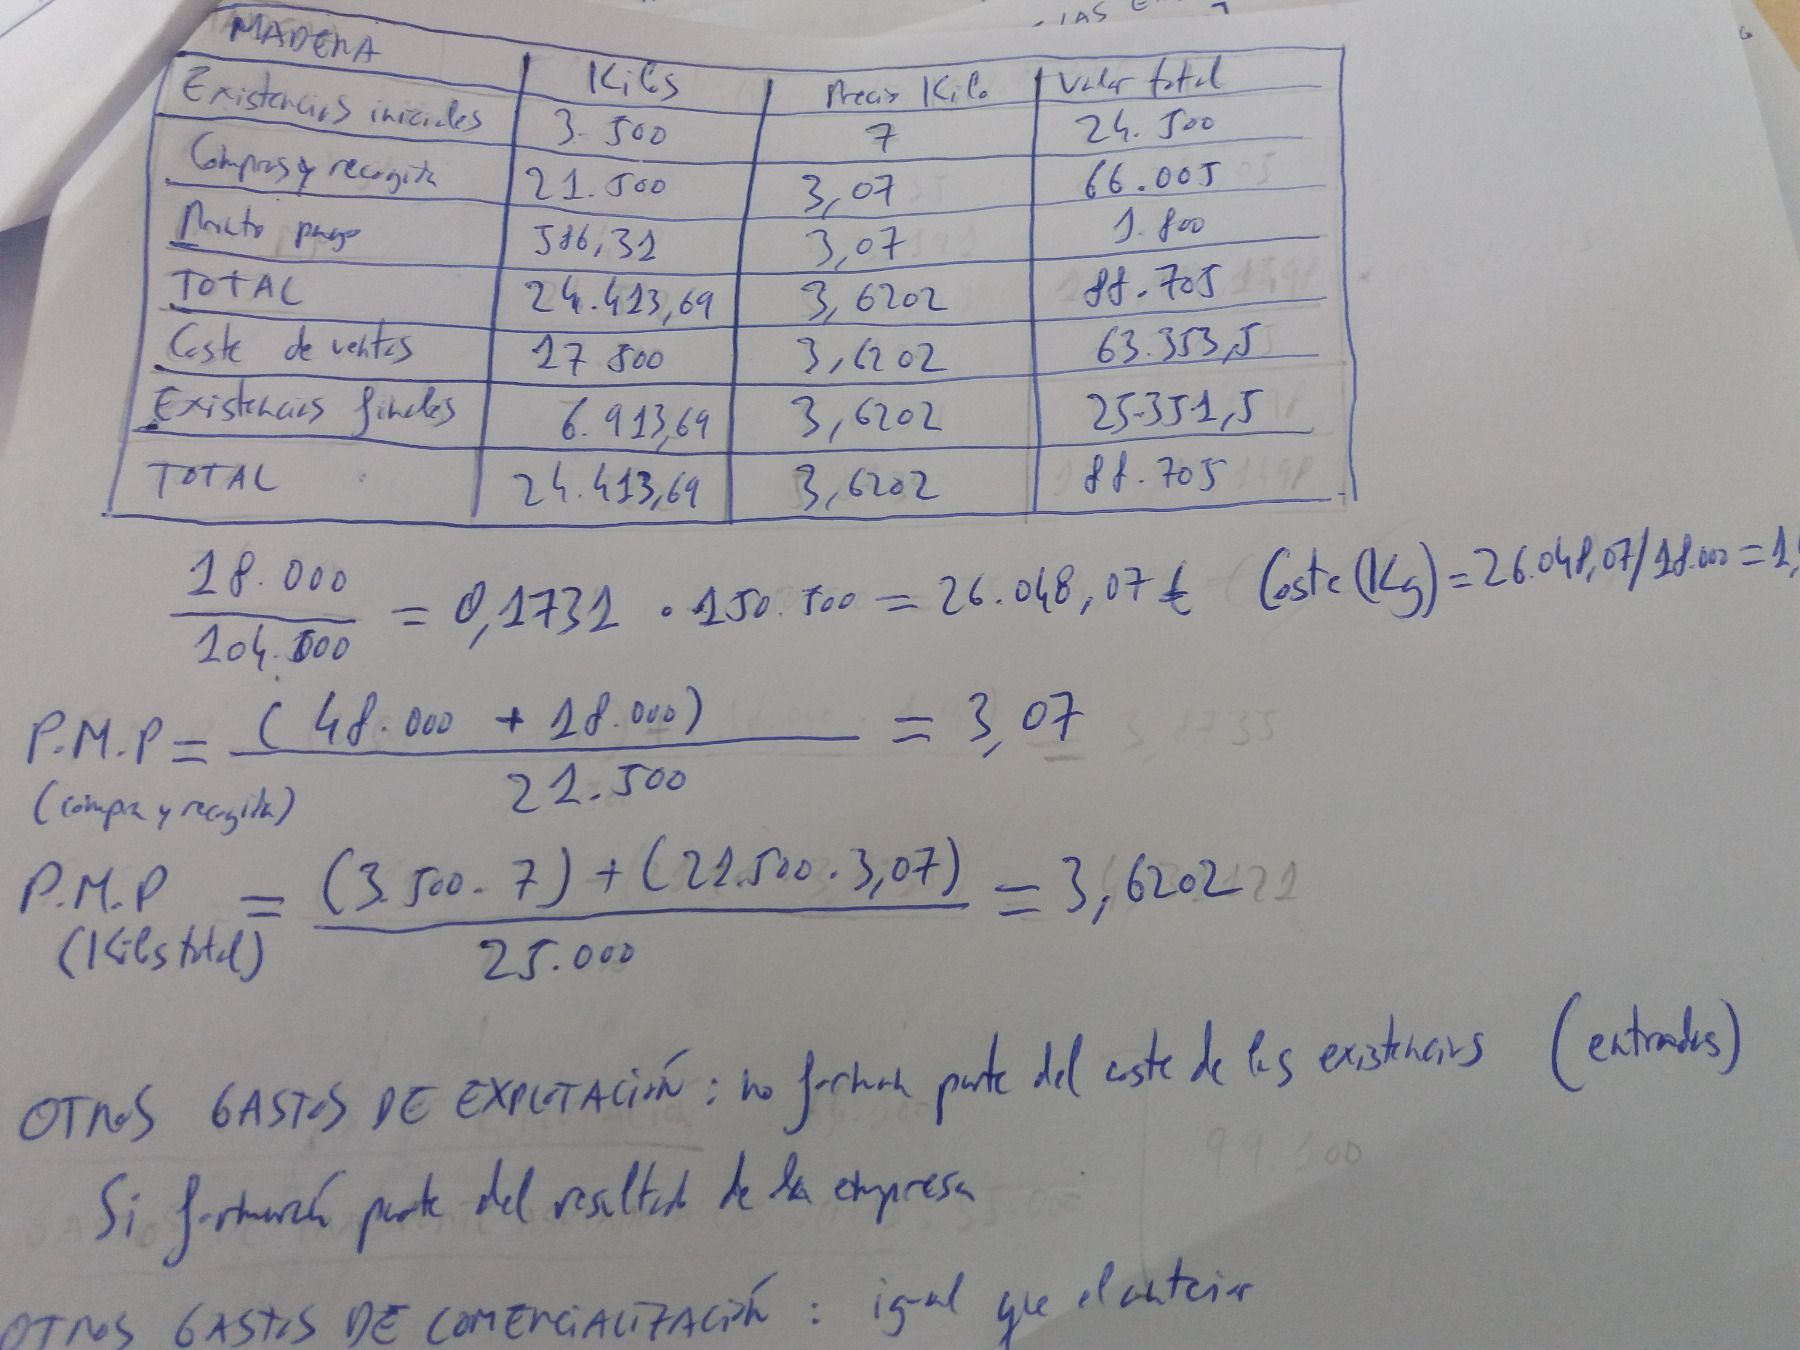 MADERA
Kilos Precio Kilo Valor total
Existencias iniciales 3.500 7 24.500
Compras y recogida 21.500 3,07 66.005
Pronto pago 586,31 3,07 1.800
TOTAL 24.413,69 3,6202 88.705
Coste de ventas 17 500 3,6202 63.353,5
Existencias finales 6.913,69 3,6202 25.351,5
TOTAL 24.413,69 3,6202 88.705
18.000 / 104.000 = 0,1731 · 150.500 = 26.048,07 € Coste (Kg) = 26.048,07/18.000 = 1,
P.M.P = (48.000 + 18.000) / 21.500 = 3,07
(compra y recogida)
P.M.P = (3.500 · 7) + (21.500 · 3,07) / 25.000 = 3,6202
(Kilos total)
OTROS GASTOS DE EXPLOTACIÓN: no forman parte del coste de las existencias (entradas)
Si formarán parte del resultado de la empresa
OTROS GASTOS DE COMERCIALIZACIÓN: igual que el anterior